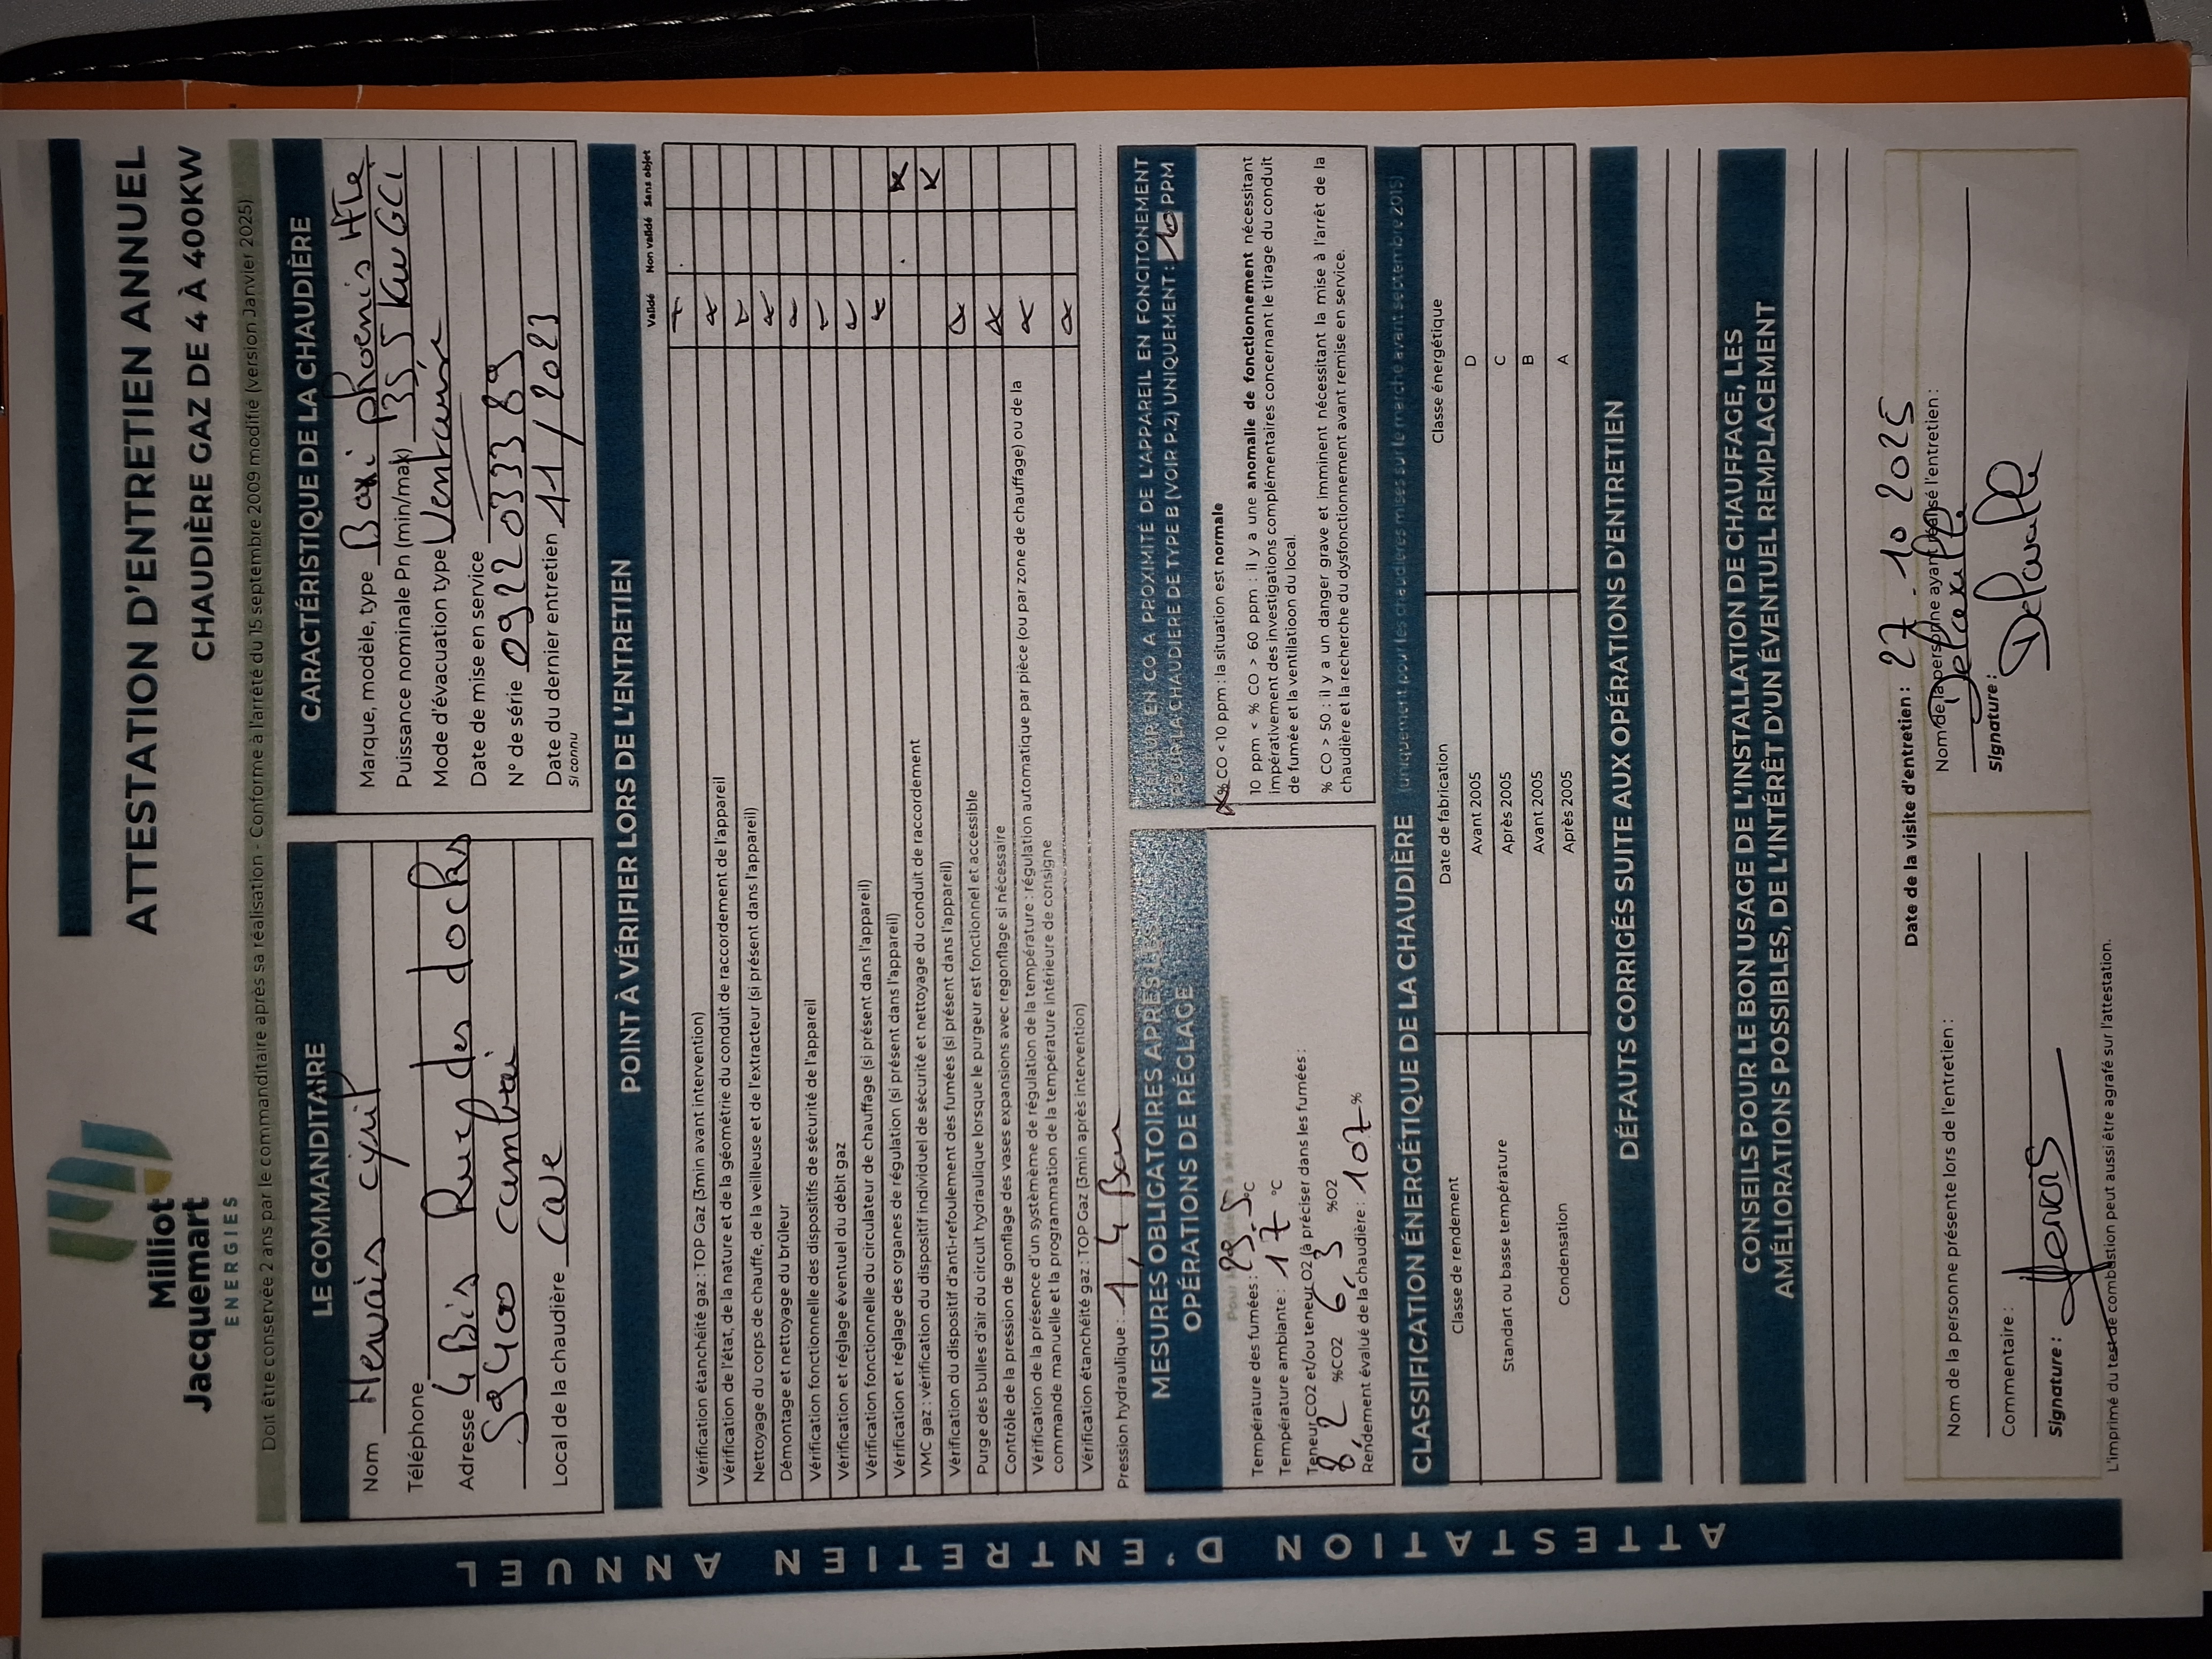 Milliot
Jacquemart
ENERGIES
ATTESTATION D'ENTRETIEN ANNUEL
CHAUDIÈRE GAZ DE 4 À 400KW
Doit être conservée 2 ans par le commanditaire après sa réalisation - Conforme à l'arrêté du 15 septembre 2009 modifié (version Janvier 2025)
ATTESTATION D'ENTRETIEN ANNUEL
LE COMMANDITAIRE
Nom Hervais cyril
Téléphone
Adresse 4 Bis Rue des docks
59400 cambrai
Local de la chaudière cave
CARACTÉRISTIQUE DE LA CHAUDIÈRE
Marque, modèle, type Baxi phoenis HTe
Puissance nominale Pn (min/mak) 35 5 Kw GCL
Mode d'évacuation type Ventouse
Date de mise en service
N° de série 0922033389
Date du dernier entretien 11/2023
Si connu
POINT À VÉRIFIER LORS DE L'ENTRETIEN
Validé Non validé Sans objet
Vérification étanchéité gaz : TOP Gaz (3min avant intervention)
Vérification de l'état, de la nature et de la géométrie du conduit de raccordement de l'appareil
Nettoyage du corps de chauffe, de la veilleuse et de l'extracteur (si présent dans l'appareil)
Démontage et nettoyage du brûleur
Vérification fonctionnelle des dispositifs de sécurité de l'appareil
Vérification et réglage éventuel du débit gaz
Vérification fonctionnelle du circulateur de chauffage (si présent dans l'appareil)
Vérification et réglage des organes de régulation (si présent dans l'appareil)
VMC gaz : vérification du dispositif individuel de sécurité et nettoyage du conduit de raccordement
Vérification du dispositif d'anti-refoulement des fumées (si présent dans l'appareil)
Purge des bulles d'air du circuit hydraulique lorsque le purgeur est fonctionnel et accessible
Contrôle de la pression de gonflage des vases expansions avec regonflage si nécessaire
Vérification de la présence d'un système de régulation de la température : régulation automatique par pièce (ou par zone de chauffage) ou de la
commande manuelle et la programmation de la température intérieure de consigne
Vérification étanchéité gaz : TOP Gaz (3min après intervention)
Pression hydraulique : 1,4 Bar
MESURES OBLIGATOIRES APRES LES
OPÉRATIONS DE RÉGLAGE
Température des fumées : 29.5 °C
Température ambiante : 17 °C
Teneur CO2 et/ou teneur O2 (à préciser dans les fumées :
8,2 %CO2 6,3 %O2
Rendement évalué de la chaudière : 107 %
TENEUR EN CO A PROXIMITÉ DE L'APPAREIL EN FONCITONEMENT
POUR LA CHAUDIERE DE TYPE B (VOIR P.2) UNIQUEMENT : 10 PPM
% CO < 10 ppm : la situation est normale
10 ppm < % CO > 60 ppm : il y a une anomalie de fonctionnement nécessitant
impérativement des investigations complémentaires concernant le tirage du conduit
de fumée et la ventillation du local.
% CO > 50 : il y a un danger grave et imminent nécessitant la mise à l'arrêt de la
chaudière et la recherche du dysfonctionnement avant remise en service.
CLASSIFICATION ÉNERGÉTIQUE DE LA CHAUDIÈRE (uniquement pour les chaudières mises sur le marché avant septembre 2015)
Classe de rendement Date de fabrication Classe énergétique
Standart ou basse température Avant 2005 D
Après 2005 C
Condensation Avant 2005 B
Après 2005 A
DÉFAUTS CORRIGÉS SUITE AUX OPÉRATIONS D'ENTRETIEN
CONSEILS POUR LE BON USAGE DE L'INSTALLATION DE CHAUFFAGE, LES
AMÉLIORATIONS POSSIBLES, DE L'INTÉRÊT D'UN ÉVENTUEL REMPLACEMENT
Date de la visite d'entretien : 27.10 2025
Nom de la personne présente lors de l'entretien :
Commentaire :
Signature :
Nom de la personne ayant réalisé l'entretien :
Signature :
L'imprimé du test de combustion peut aussi être agrafé sur l'attestation.